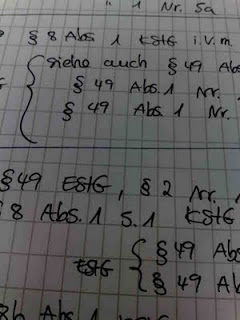 1 Nr. 5a
§ 8 Abs 1 KStG i.V.m.
siehe auch § 49 Abs
§ 49 Abs.1 Nr.
§ 49 Abs 1 Nr.
§49 EStG, § 2 Nr. 1
§8 Abs.1 S.1 KStG
§49 Abs
EStG § 49 Ab
8b Abs 1